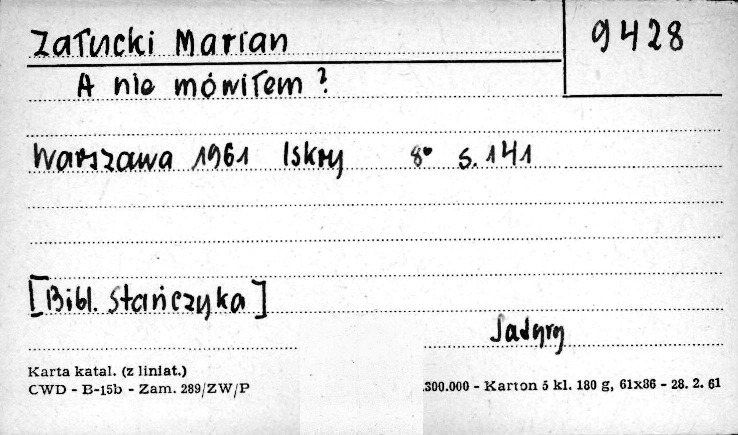 Załucki Marian 9428
A nie mówiłem?
Warszawa 1961 Iskry 8° s. 141
[Bibl. Stańczyka]
Satyry
Karta katal. (z liniat.)
CWD - B-15b - Zam. 289/ZW/P .300.000 - Karton 5 kl. 180 g, 61x86 - 28. 2. 61